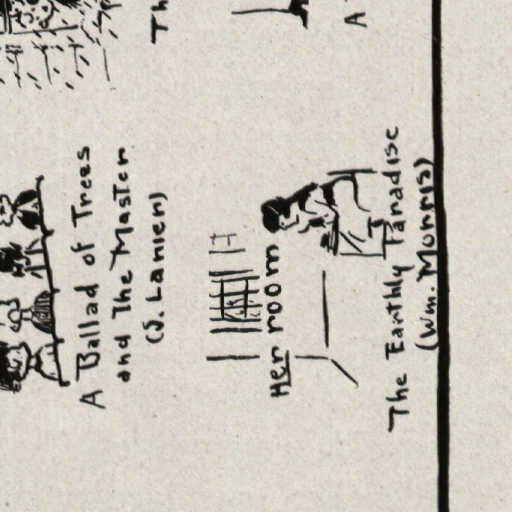 Th
A
A Ballad of Trees
and The Master
(S. Lanier)
Her room
The Earthly Paradise
(Wm. Morris)